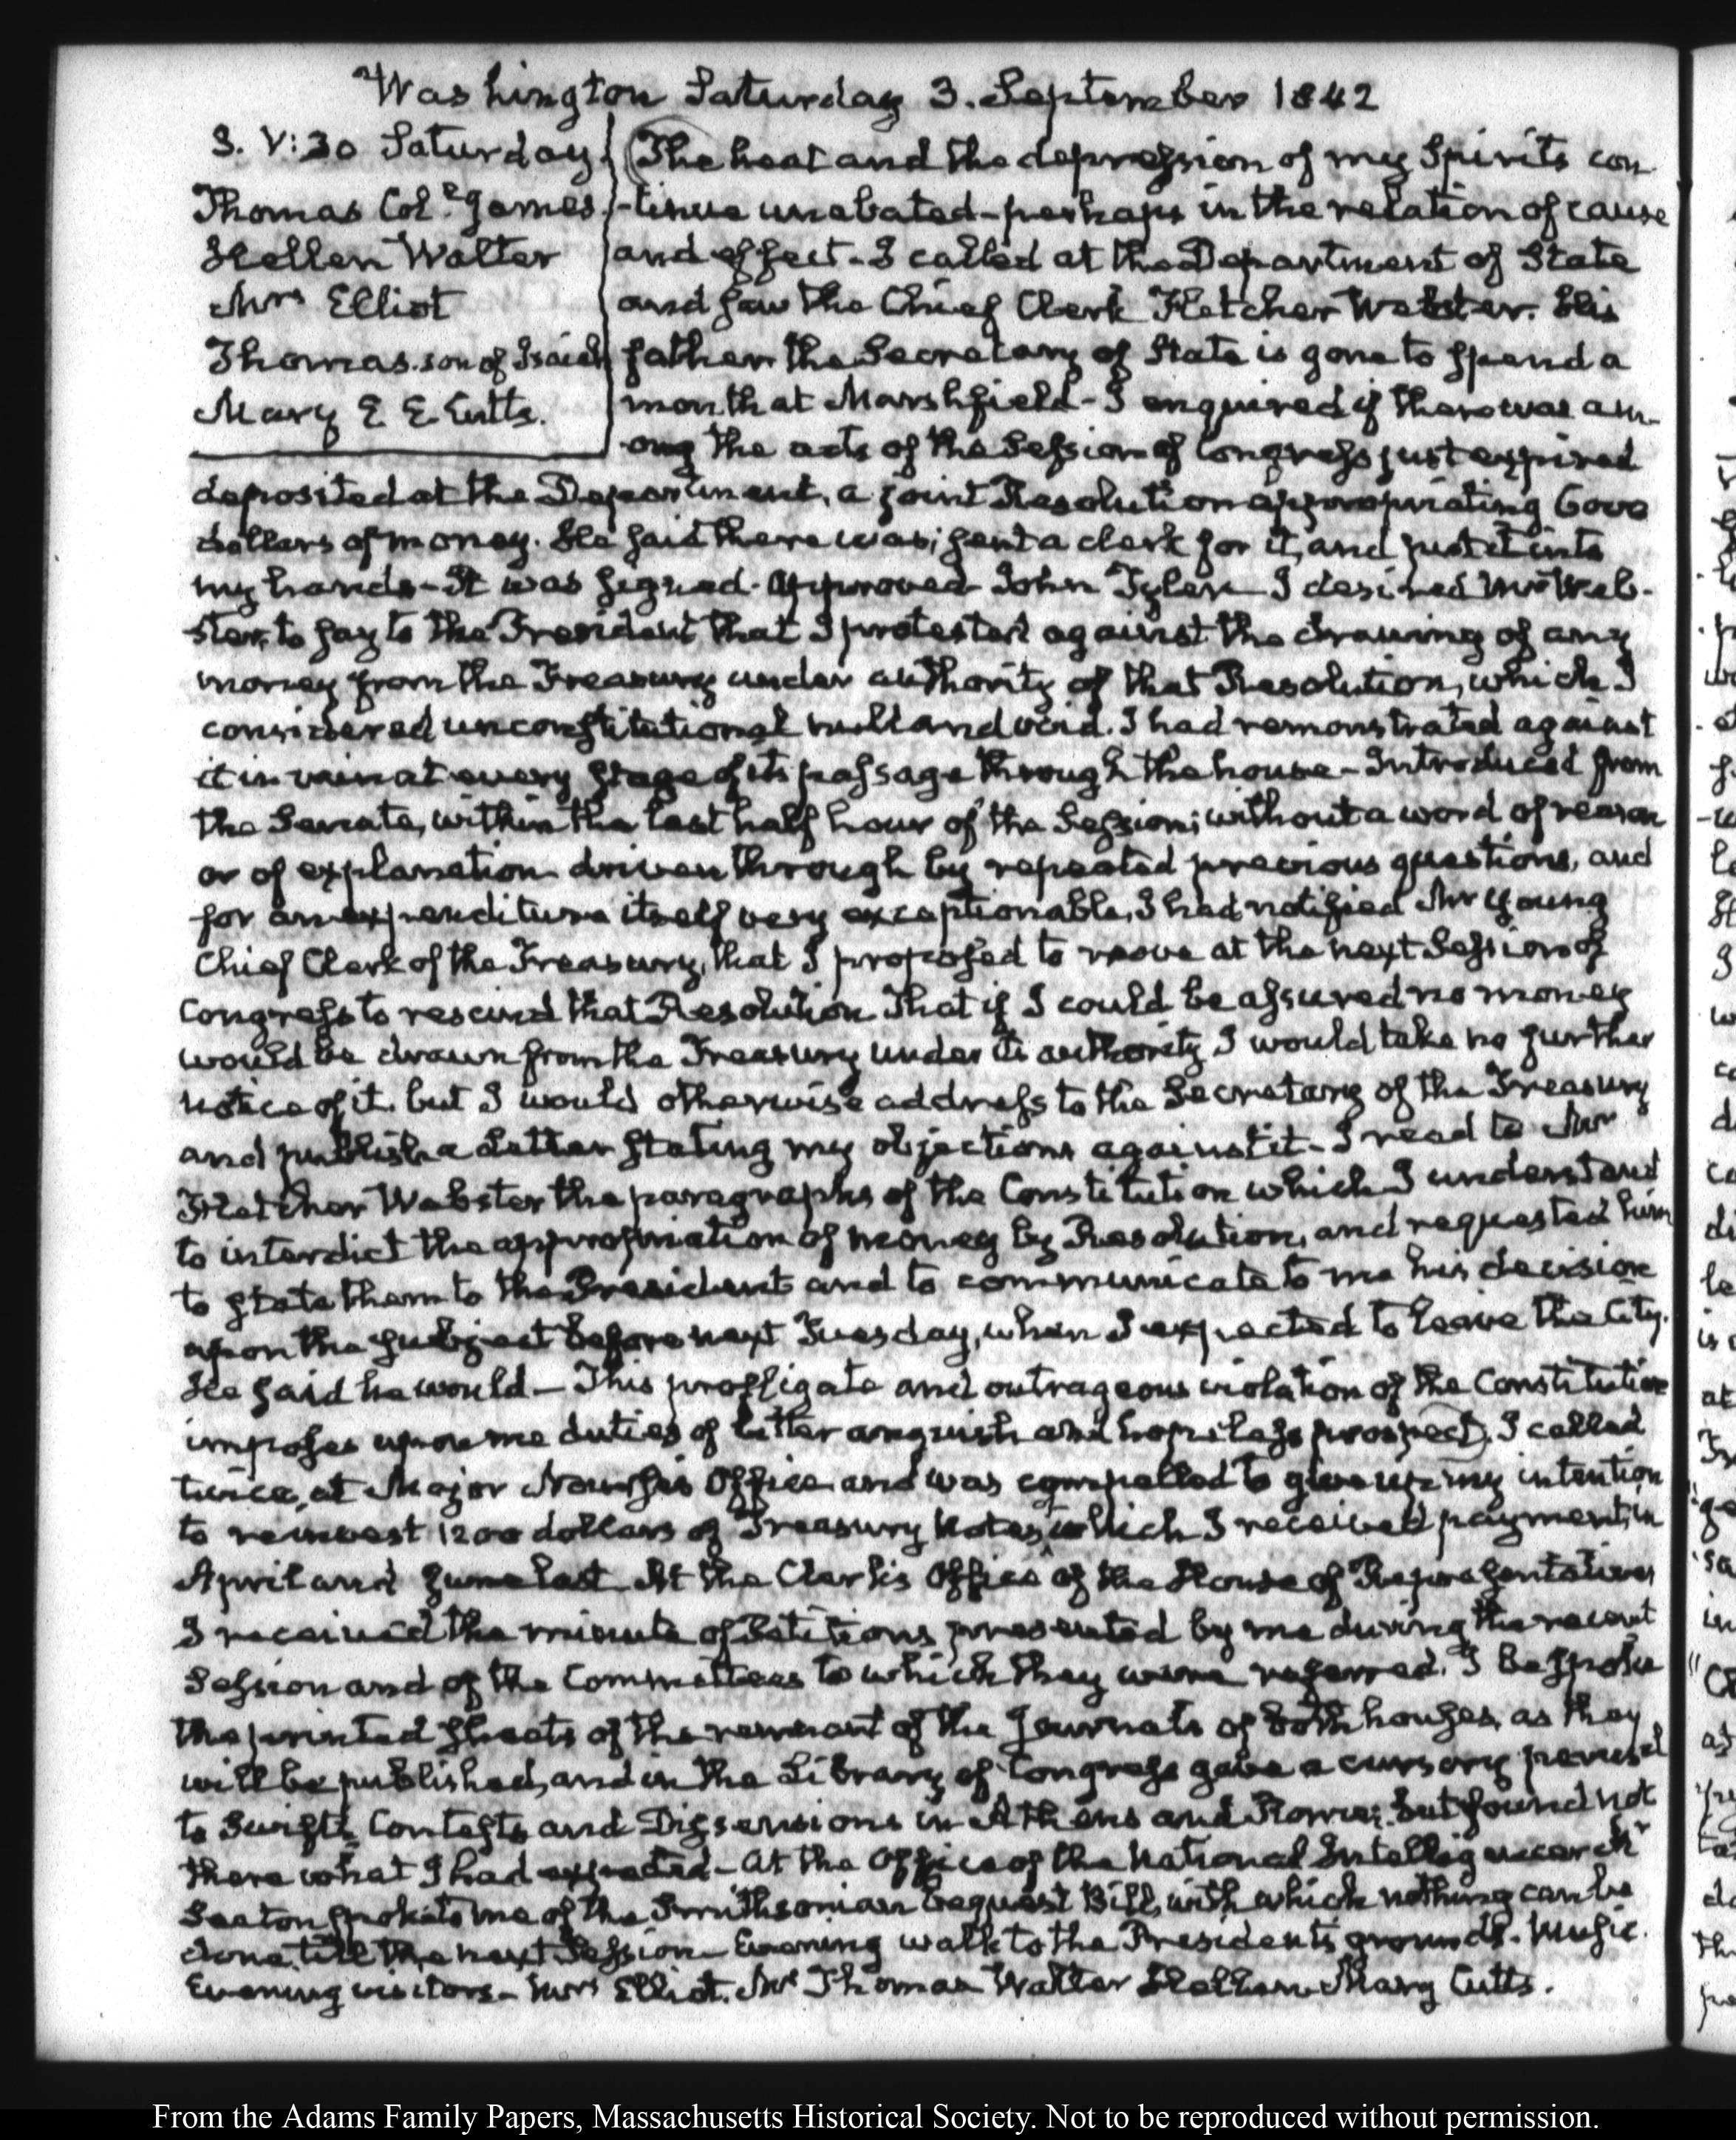 Washington Saturday 3. September 1842
3. V:30 Saturday
Thomas Col. James.
Hellen Walter
Mrs Elliot
Thomas. son of Isaiah
Mary E E Cutts.
The heat and the depression of my Spirits con
-tinue unabated - perhaps in the relation of cause
and effect - I called at the Department of State
and saw the Chief Clerk Fletcher Webster. His
father the Secretary of State is gone to spend a
month at Marshfield - I enquired if there was am-
ong the acts of the Session of Congress just expired
deposited at the Department, a joint Resolution appropriating 6000
dollars of money. He said there was; sent a clerk for it, and put it into
my hands - It was signed - Approved John Tyler - I desired Mr Web-
ster, to say to the President that I protested against the drawing of any
money from the Treasury under authority of that Resolution, which I
considered unconstitutional null and void. I had remonstrated against
it in vain at every stage of its passage through the house - Introduced from
the Senate, within the last half hour of the Session; without a word of reason
or of explanation driven through by repeated previous questions, and
for an expenditure itself very exceptionable, I had notified Mr Young
Chief Clerk of the Treasury, that I proposed to move at the next Session of
Congress to rescind that Resolution That if I could be assured no money
would be drawn from the Treasury under its authority I would take no further
notice of it. but I would otherwise address to the Secretary of the Treasury
and publish a Letter stating my objections against it - I read to Mr
Fletcher Webster the paragraphs of the Constitution which I understand
to interdict the appropriation of money by Resolution, and requested him
to state them to the President and to communicate to me his decision
upon the subject before next Tuesday, when I expected to leave the City.
He said he would - This profligate and outrageous violation of the Constitution
imposes upon me duties of bitter anguish and hopeless prospect. I called
twice, at Major Nourse's Office and was compelled to give up my intention
to reinvest 1200 dollars of Treasury Notes, of which I received payment, in
April and June last At the Clerk's Office of the House of Representatives
I received the minute of Petitions presented by me during the recent
Session and of the Committees to which they were referred. I bespoke
the printed sheets of the remnant of the Journals of both houses, as they
will be published, and in the Library of Congress gave a cursory perusal
to Swift's Contests and Dissensions in Athens and Rome; but found not
there what I had expected - At the Office of the National Intelligencer Mr
Seaton spoke to me of the Smithsonian bequest Bill, with which nothing can be
done till the next Session - Evening walk to the President's grounds - Music.
Evening visitors - Mrs Elliot. Mr Thomas Walter Hellen Mary Cutts.
From the Adams Family Papers, Massachusetts Historical Society. Not to be reproduced without permission.